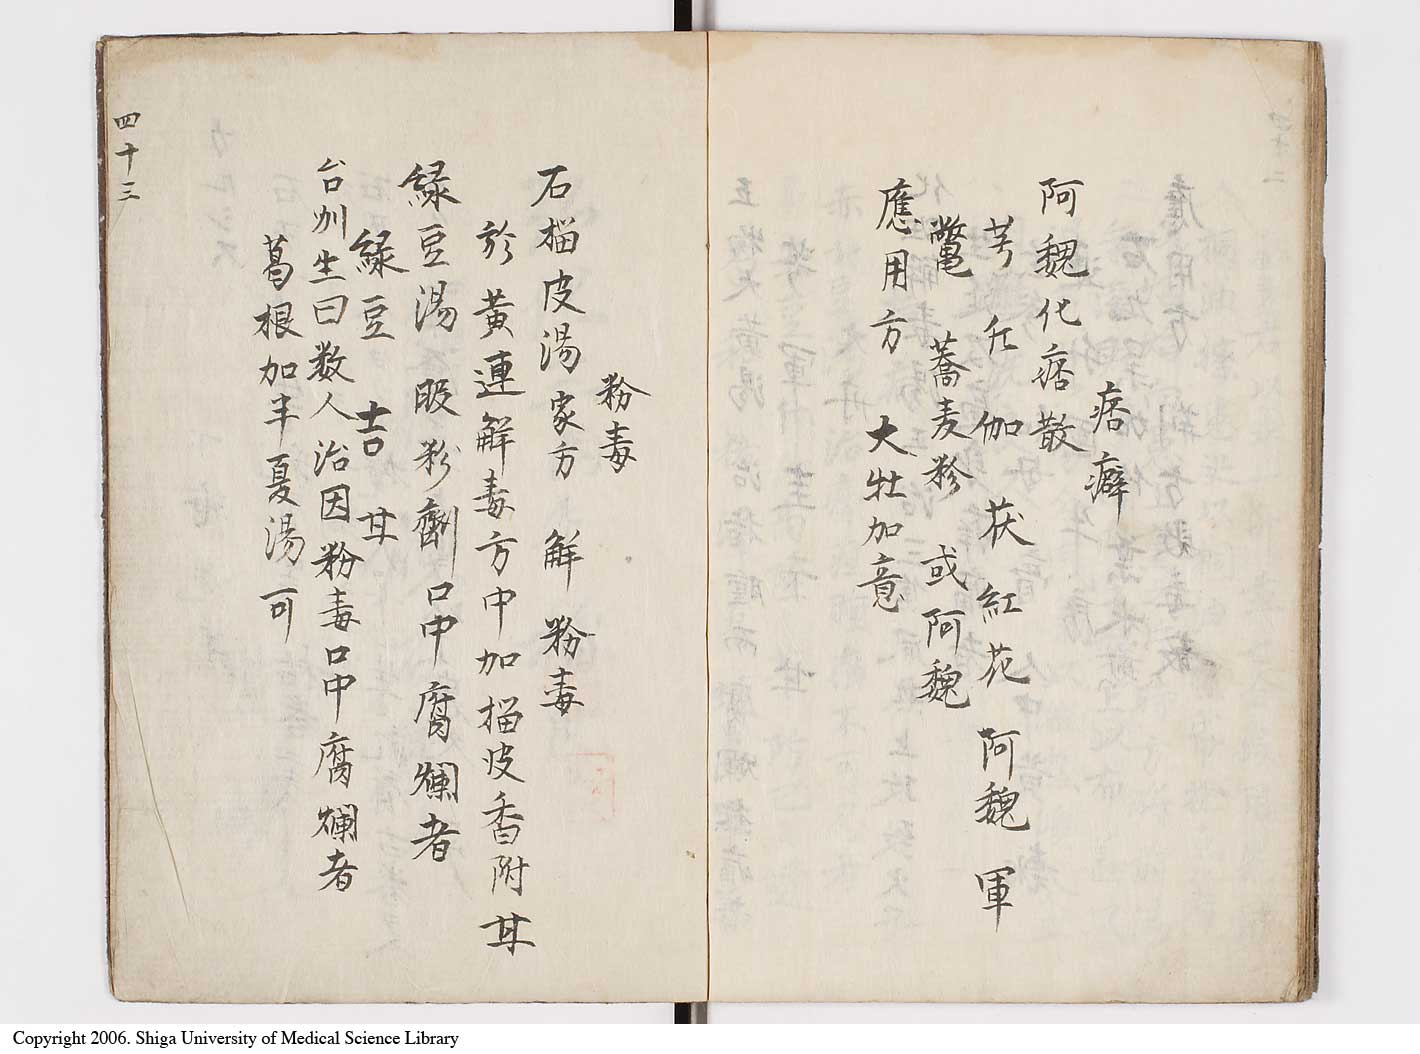 痞癖
阿魏化痞散
芎 伽 茯 紅花 阿魏 軍
鼈 蕎麦粉 或阿魏
應用方 大牡加意
粉毒
石榴皮湯 家方 解粉毒
於黄連解毒方中加榴皮香附甘
緑豆湯 服粉劑口中腐爛者
緑豆 吉 甘
台州生曰数人治因粉毒口中腐爛者
葛根加半夏湯可
四十三
Copyright 2006. Shiga University of Medical Science Library